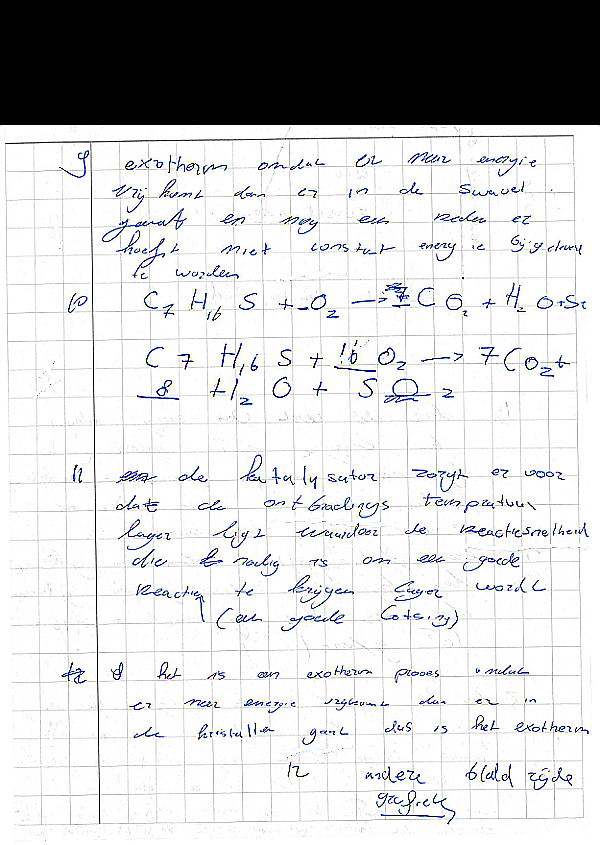 9 exotherm omdat er meer energie
vrij komt dan er in de swavel
gaat en nog een reden er
hoeft niet constant energie bijgeleverd
te worden
10 C7 H16 S + O2 → CO2 + H2O + S
C7 H16 S + 16 O2 → 7CO2 +
8 H2O + SO2
11 de katalysator zorgt er voor
dat de ontbradings tempratuur
lager ligt waardoor de reactiesnelheid
die nodig is om een goede
reactie te krijgen lager wordt
(een goede botsing)
het is een exotherm proces omdat
er meer energie vrijkomt dan er in
de kristallen gaat dus is het exotherm
12 andere blald zijde
grafiek